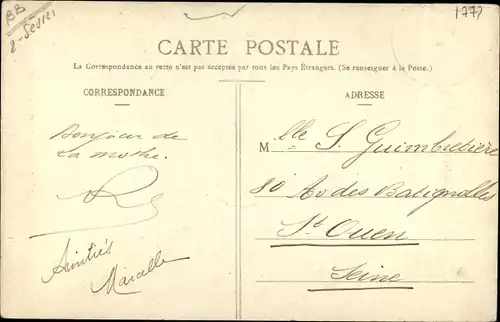 BB
2-Sèvres
1777
CARTE POSTALE
La Correspondance au recto n'est pas acceptée par tous les Pays Étrangers. (Se renseigner à la Poste.)
CORRESPONDANCE
Bonjour de
La mothe.
Amitiés
Marcelle
ADRESSE
Mlle S. Guimbretière
80 Av des Batignolles
St Ouen
Seine